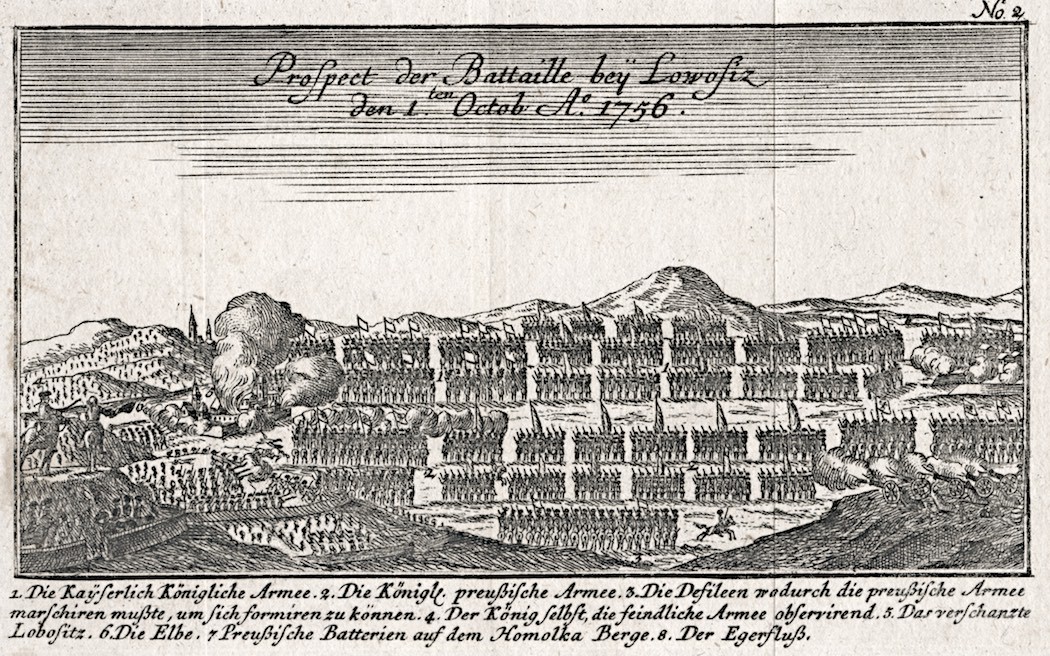 No. 2
Prospect der Battaille beÿ Lowosiz
den 1.ten Octob A.o 1756.
1. Die Kaÿserlich Königliche Armee. 2. Die Königl. preußische Armee. 3. Die Defileen wodurch die preußische Armee
marschiren mußte, um sich formiren zu können. 4. Der König selbst, die feindliche Armee observirend. 5. Das verschanzte
Lobositz. 6. Die Elbe. 7 Preußische Batterien auf dem Homolka Berge. 8. Der Egerfluß.